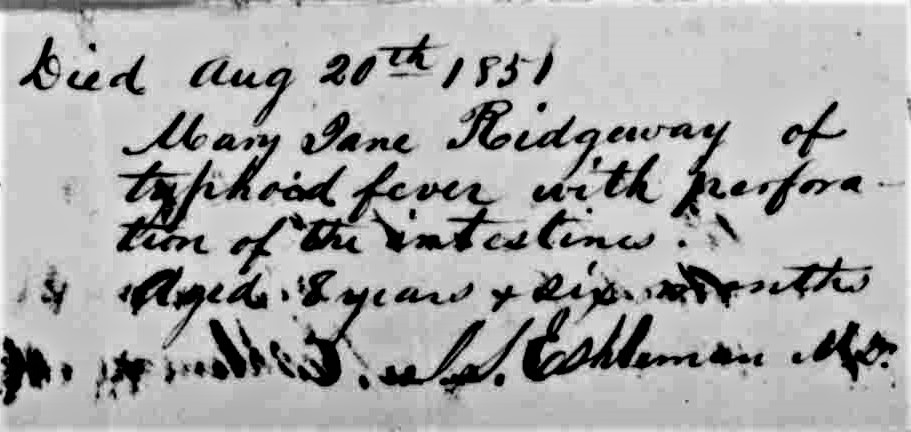 Died Aug 20th 1851
Mary Jane Ridgeway of
typhoid fever with perfora-
tion of the intestines.
Aged 8 years + six months
Eshleman M.D.